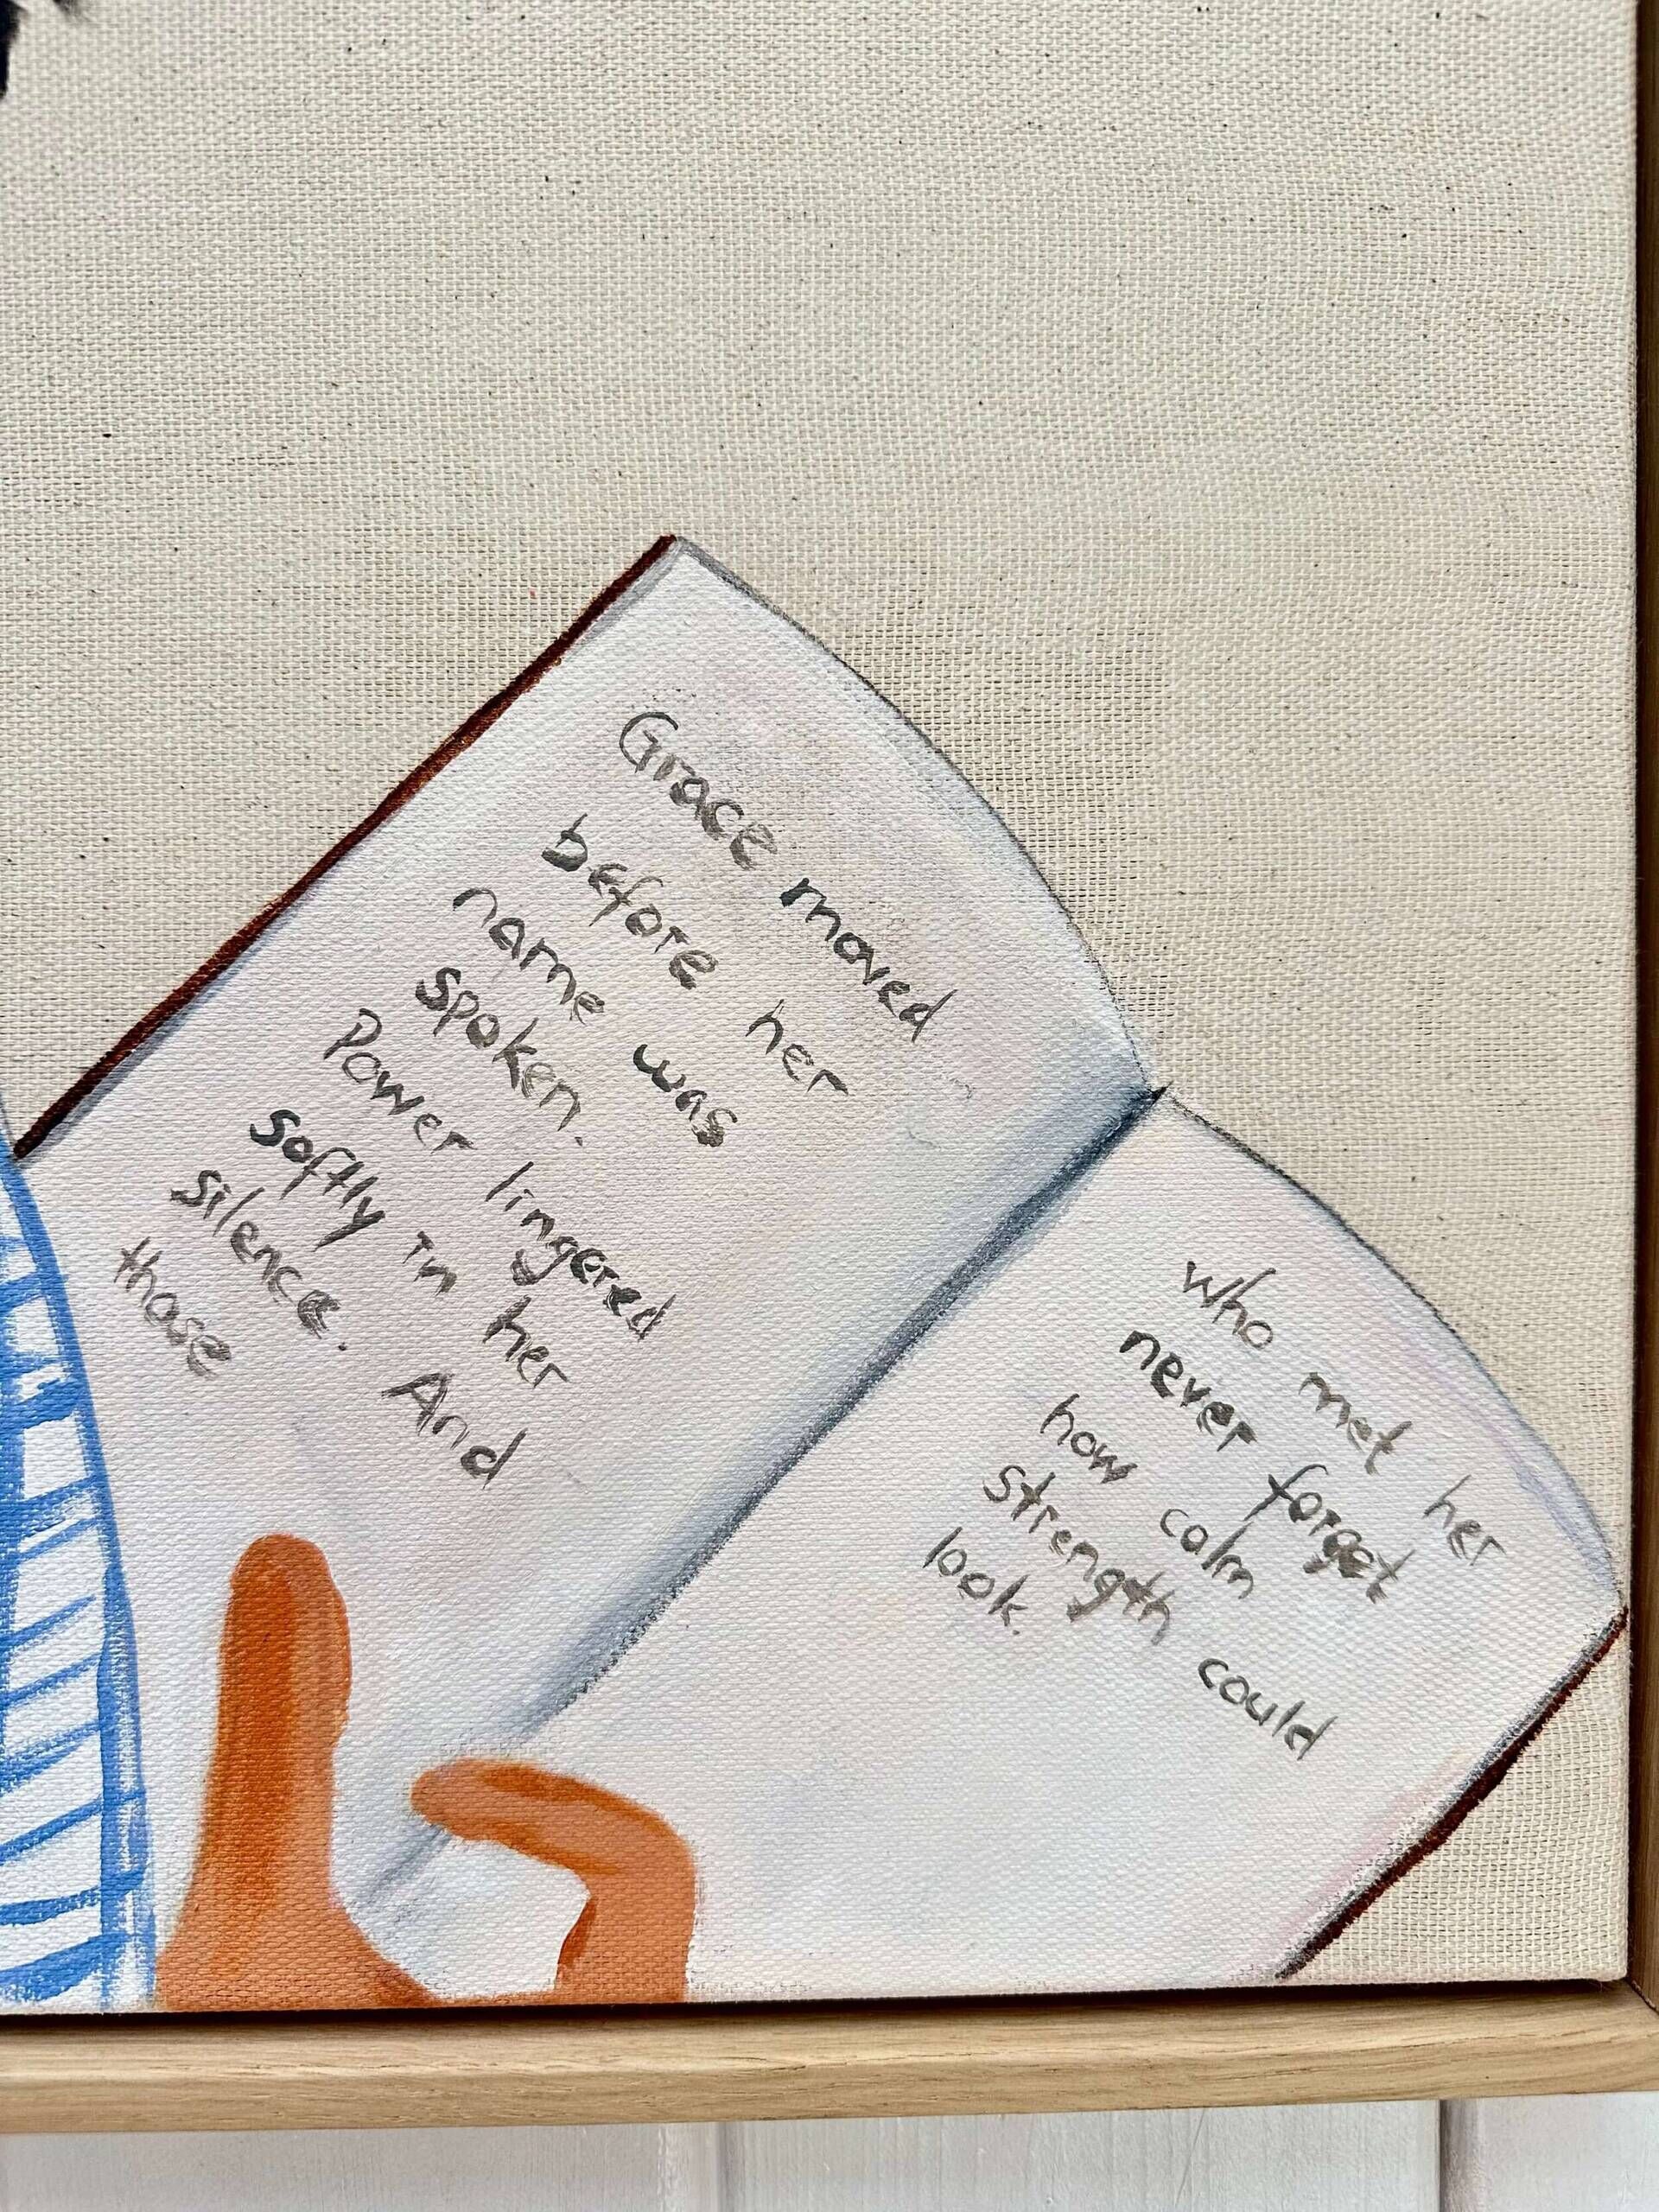 Grace moved
before her
name was
spoken.
Power lingered
softly in her
silence. And
those
who met her
never forget
how calm
strength could
look.